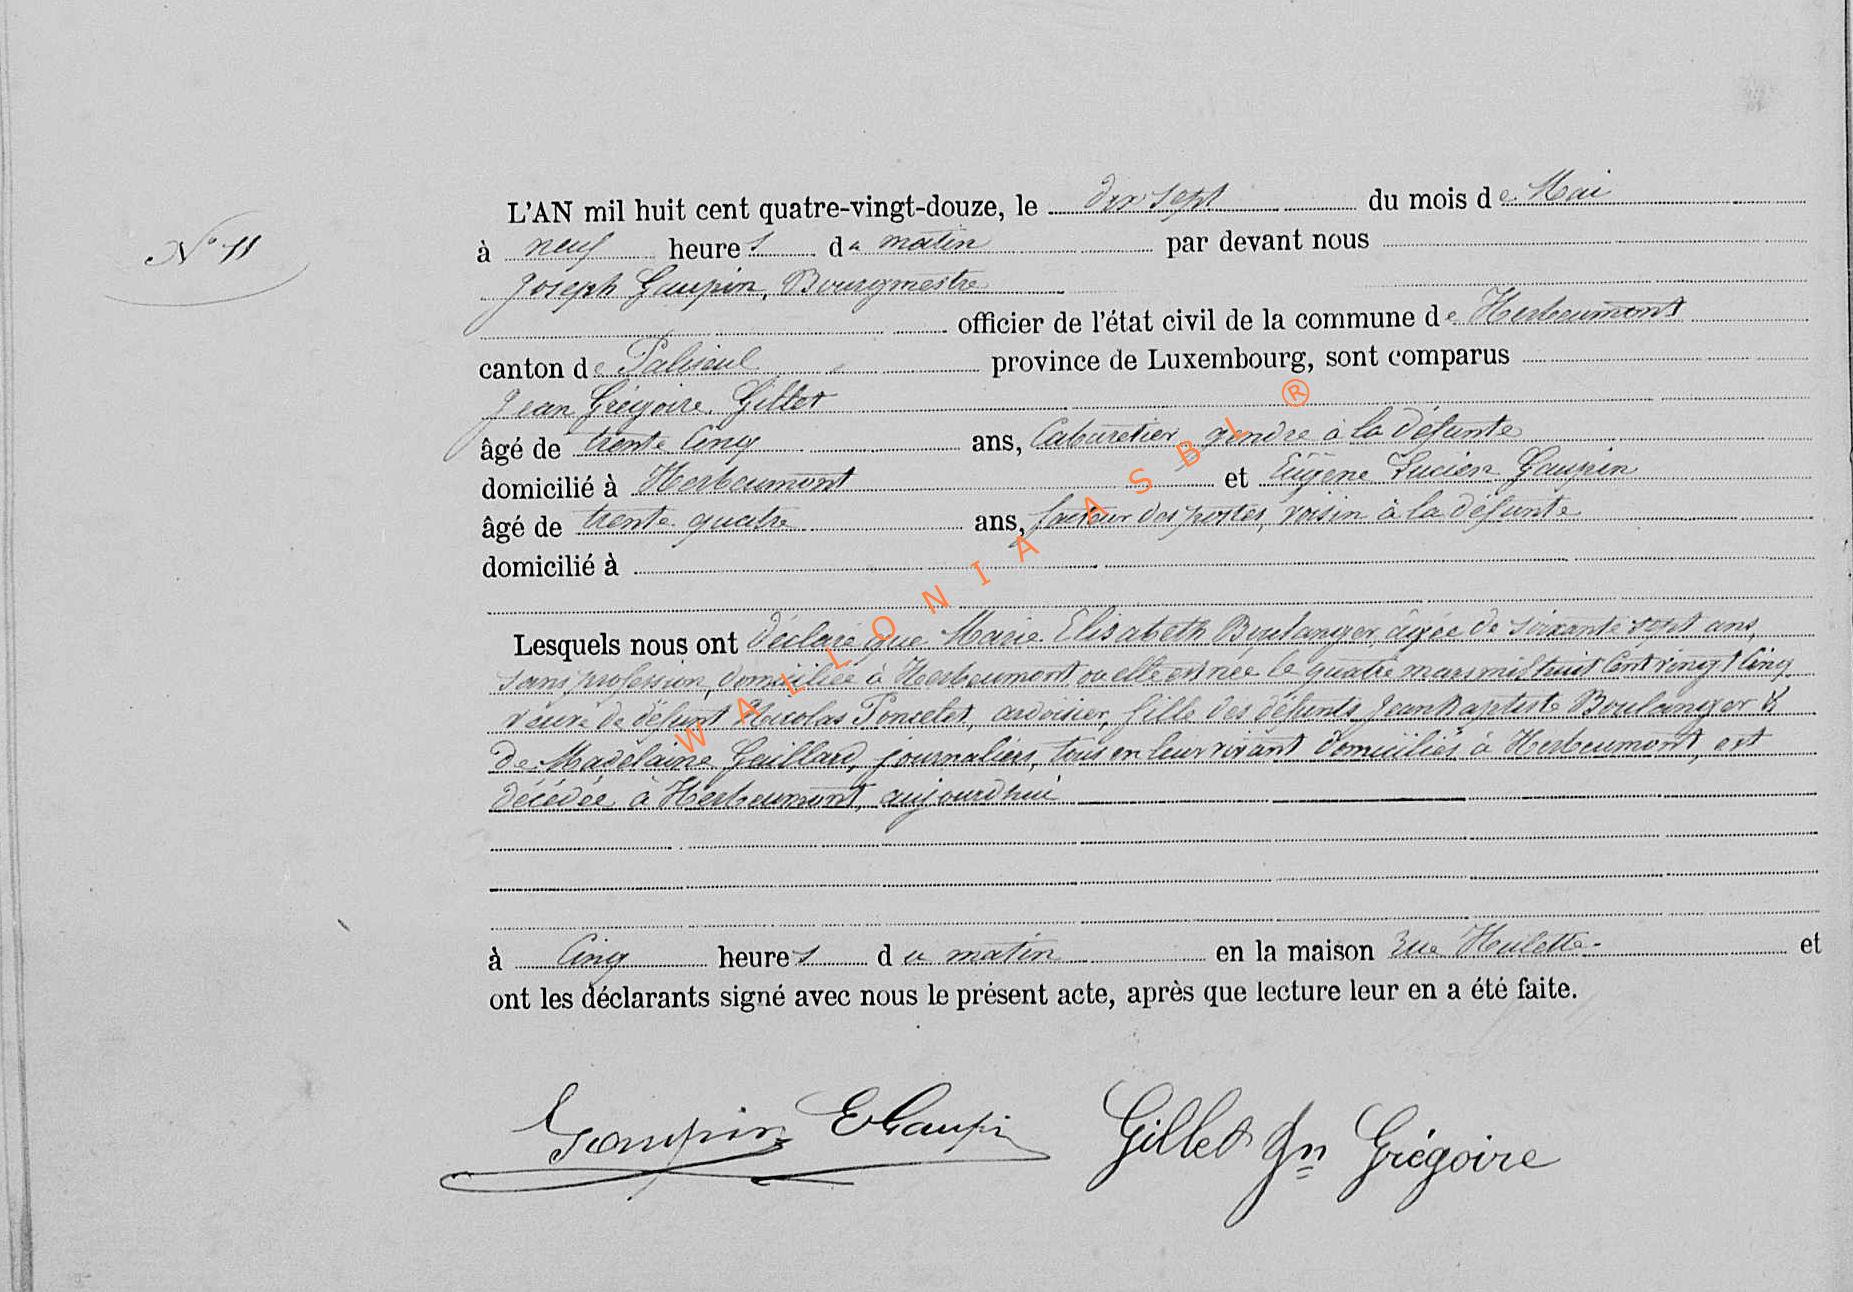 N° 11
L'AN mil huit cent quatre-vingt-douze, le dix sept du mois de Mai
à neuf heures du matin par devant nous
Joseph Gaupin, Bourgmestre
officier de l'état civil de la commune de Herbeumont
canton de Paliseul province de Luxembourg, sont comparus
Jean Grégoire Gillet
âgé de trente cinq ans, Cabaretier, gendre à la défunte
domicilié à Herbeumont et Eugène Lucien Gaupin
âgé de trente quatre ans, facteur des postes, voisin à la défunte
domicilié à
Lesquels nous ont déclaré que Marie Elisabeth Boulanger, âgée de soixante sept ans,
sans profession, domiciliée à Herbeumont où elle est née le quatre mars mil huit cent vingt cinq
veuve de défunt Nicolas Poncelet, ardoisier, fille des défunts Jean Baptiste Boulanger &
de Madelaine Guillard, journaliers, tous en leur vivant domiciliés à Herbeumont, est
décédée à Herbeumont, aujourd'hui
à Cinq heures du matin en la maison rue Hulette et
ont les déclarants signé avec nous le présent acte, après que lecture leur en a été faite.
Gaupin EGaupin Gillet Jn Grégoire
WALLONIA ASBL ®